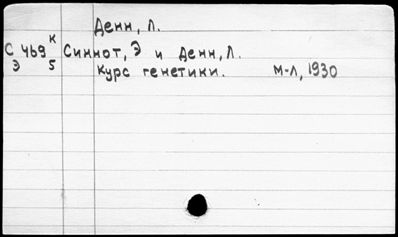 Денн, Л.
К
С 469 Синнот, Э и Денн, Л.
Э 5 Курс генетики. М-Л, 1930